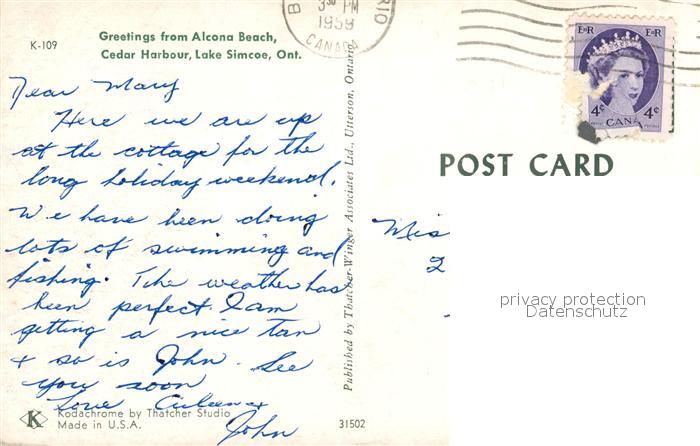 K-109
Greetings from Alcona Beach,
Cedar Harbour, Lake Simcoe, Ont.
Dear Mary
Here we are up
at the cottage for the
long holiday weekend.
We have been doing
lots of swimming and
fishing. The weather has
been perfect. I am
getting a nice tan
+ so is John. See
you soon
Love
John
K
Kodachrome by Thatcher Studio
Made in U.S.A.
31502
Published by Thatcher-Winger Associates Ltd., Utterson, Ontario
PM
1959
CANADA
E II R
E II R
4¢
4¢
CANADA
POST CARD
Mis
2
privacy protection
Datenschutz